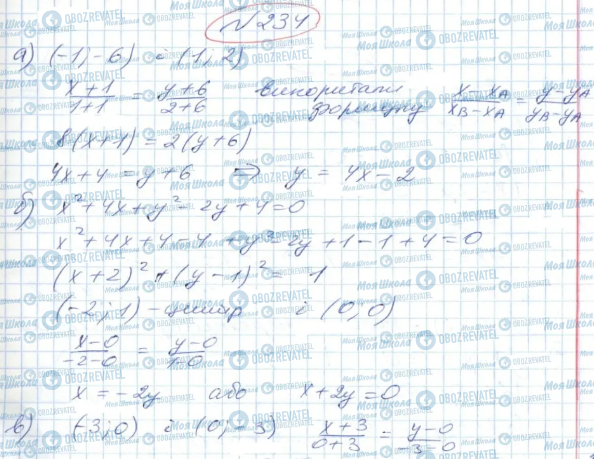 № 234
а) (-1; -6) і (1; 2)
(x+1)/(1+1) = (y+6)/(2+6) використали формулу (x-xA)/(xB-xA) = (y-yA)/(yB-yA)
8(x+1) = 2(y+6)
4x+4 = y+6 ⇒ y = 4x-2
б) x²+4x+y²-2y+4=0
x²+4x+4-4+y²-2y+1-1+4=0
(x+2)²+(y-1)² = 1
(-2; 1) - центр і (0; 0)
(x-0)/(-2-0) = (y-0)/(1-0)
x = -2y або x+2y=0
в) (-3; 0) і (0; -3) (x+3)/(0+3) = (y-0)/(-3-0)
Моя Школа
OBOZREVATEL